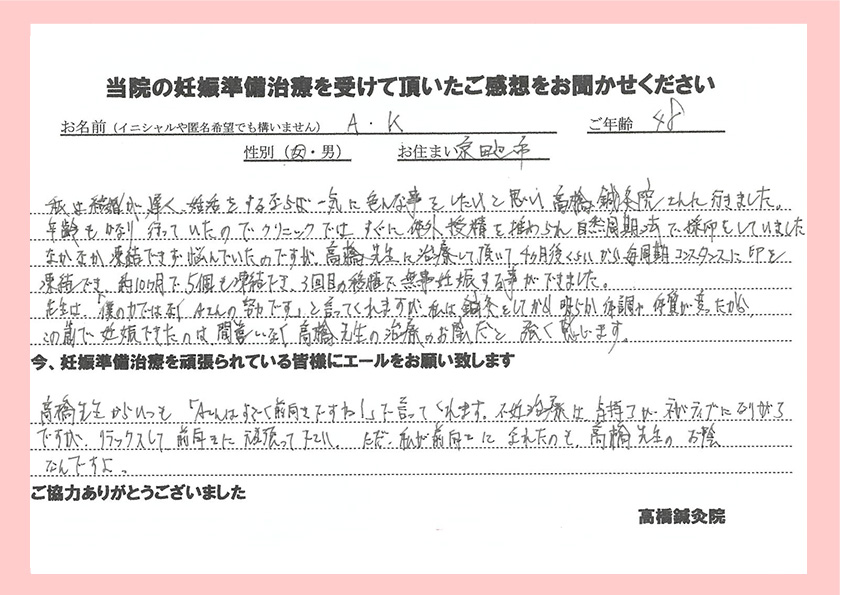 当院の妊娠準備治療を受けて頂いたご感想をお聞かせください
お名前（イニシャルや匿名希望でも構いません） A・K ご年齢 48
性別（女・男） お住まい 市
私は結婚が遅く、妊活をするならば一気に色んな事をしたいと思い高橋鍼灸院さんに行きました。
年齢もかなり行っていたのでクリニックではすぐに体外授精を推められ自然周期法で採卵をしていました
なかなか凍結できず悩んでいたのですが、高橋先生に治療して頂いて4ヵ月後くらいから毎周期コンスタンスに卵を
凍結でき、約10ヶ月で、5個も凍結でき、3回目の移植で無事妊娠する事ができました。
先生は、「僕の力ではなくAさんの努力です」と言ってくれますが、私は鍼灸をしてから明らか体調や体質が変ったから、
この前で妊娠できたのは、間違いなく高橋先生の治療のお陰だと強く感じます。
今、妊娠準備治療を頑張られている皆様にエールをお願い致します
高橋先生からいつも「Aさんはすごく前向きですね!」と言ってくれます。不妊治療は気持ちが、ネガティブになりがち
ですが、リラックスして前向きに頑張って下さい。ただ、私が前向きになれたのも、高橋先生のお陰
なんですよ。
ご協力ありがとうございました
高橋鍼灸院